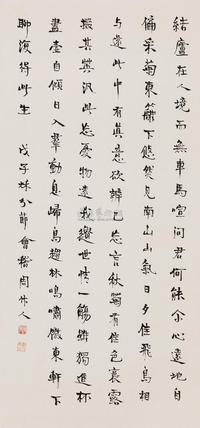 結廬在人境而無車馬喧問君何能尒心遠地自
偏采菊東籬下悠然見南山山氣日夕佳飛鳥相
与還此中有真意欲辨已忘言秋菊有佳色裛露
掇其英汎此忘憂物遠我遺世情一觴雖獨進杯
盡壺自傾日入羣動息歸鳥趨林鳴嘯傲東軒下
聊復得此生 戊子秋分節會稽周作人